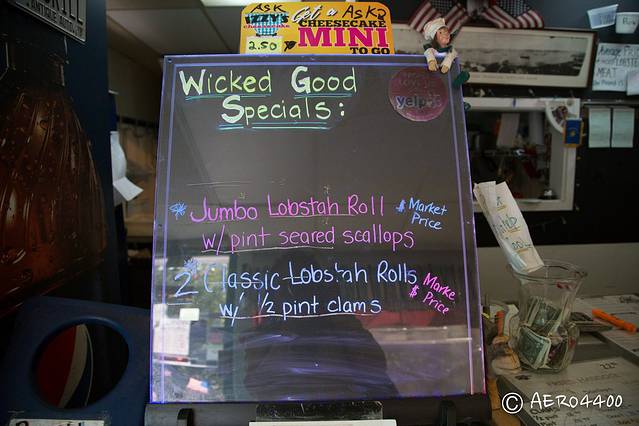 ASK
IZZY'S
CHEESECAKE
2.50
Get a
MINI
TO GO
yelp
Wicked Good
Specials:
* Jumbo Lobstah Roll
w/ pint seared scallops
$ Market
Price
2 Classic Lobstah Rolls
w/ 1/2 pint clams
Marke
$ Price
© AERO4400